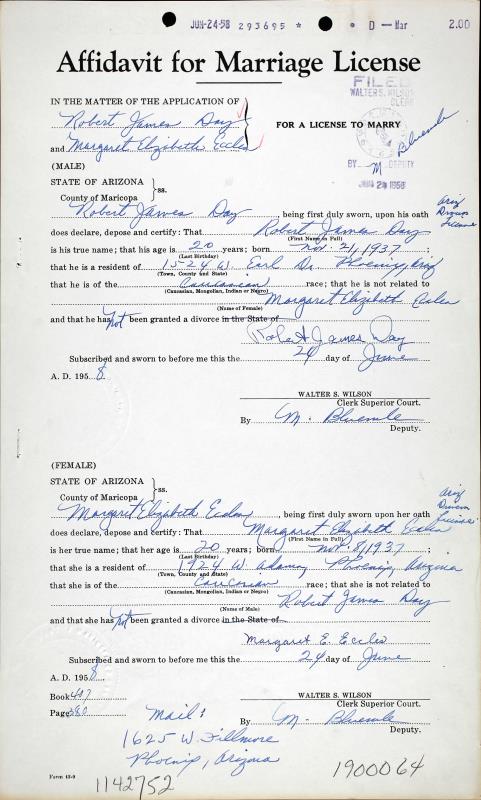 JUN-24-58 293695 * • D — Mar 2.00
Affidavit for Marriage License
FILED
WALTER S. WILSON
CLERK
IN THE MATTER OF THE APPLICATION OF
Robert James Day
FOR A LICENSE TO MARRY
and Margaret Elizabeth Eccles
BY M Bluemle DEPUTY
JUN 24 1958
(MALE)
STATE OF ARIZONA
County of Maricopa } ss.
Ariz Drivers License
Robert James Day being first duly sworn, upon his oath
does declare, depose and certify: That Robert James Day
(First Name in Full)
is his true name; that his age is 20 years; born Nov. 21, 1937 ;
(Last Birthday)
that he is a resident of 1524 W. Earl Dr. Phoenix, Ariz
(Town, County and State)
that he is of the Caucasian race; that he is not related to
(Caucasian, Mongolian, Indian or Negro)
Margaret Elizabeth Eccles
(Name of Female)
and that he has not been granted a divorce in the State of
Robert James Day
Subscribed and sworn to before me this the 24 day of June
A. D. 1958.
WALTER S. WILSON
Clerk Superior Court.
By M. Bluemle
Deputy.
(FEMALE)
STATE OF ARIZONA
County of Maricopa } ss.
Ariz Drivers License
Margaret Elizabeth Eccles being first duly sworn, upon her oath
does declare, depose and certify: That Margaret Elizabeth Eccles
(First Name in Full)
is her true name; that her age is 20 years; born Nov. 8, 1937 ;
(Last Birthday)
that she is a resident of 1924 W. Adams, Phoenix, Arizona
(Town, County and State)
that she is of the Caucasian race; that she is not related to
(Caucasian, Mongolian, Indian or Negro)
Robert James Day
(Name of Male)
and that she has not been granted a divorce in the State of
Margaret E. Eccles
Subscribed and sworn to before me this the 24 day of June
A. D. 1958.
Book 417
WALTER S. WILSON
Clerk Superior Court.
Page 380
Mail:
By M. Bluemle
Deputy.
1625 W. Fillmore
Phoenix, Arizona
Form 43-9
1142752
1900064